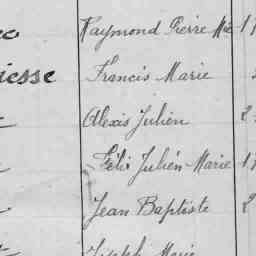 Raymond Pierre Mie 17
esse Francis Marie
Alexis Julien 2
Félix Julien Marie 17
Jean Baptiste 2
Joseph Marie